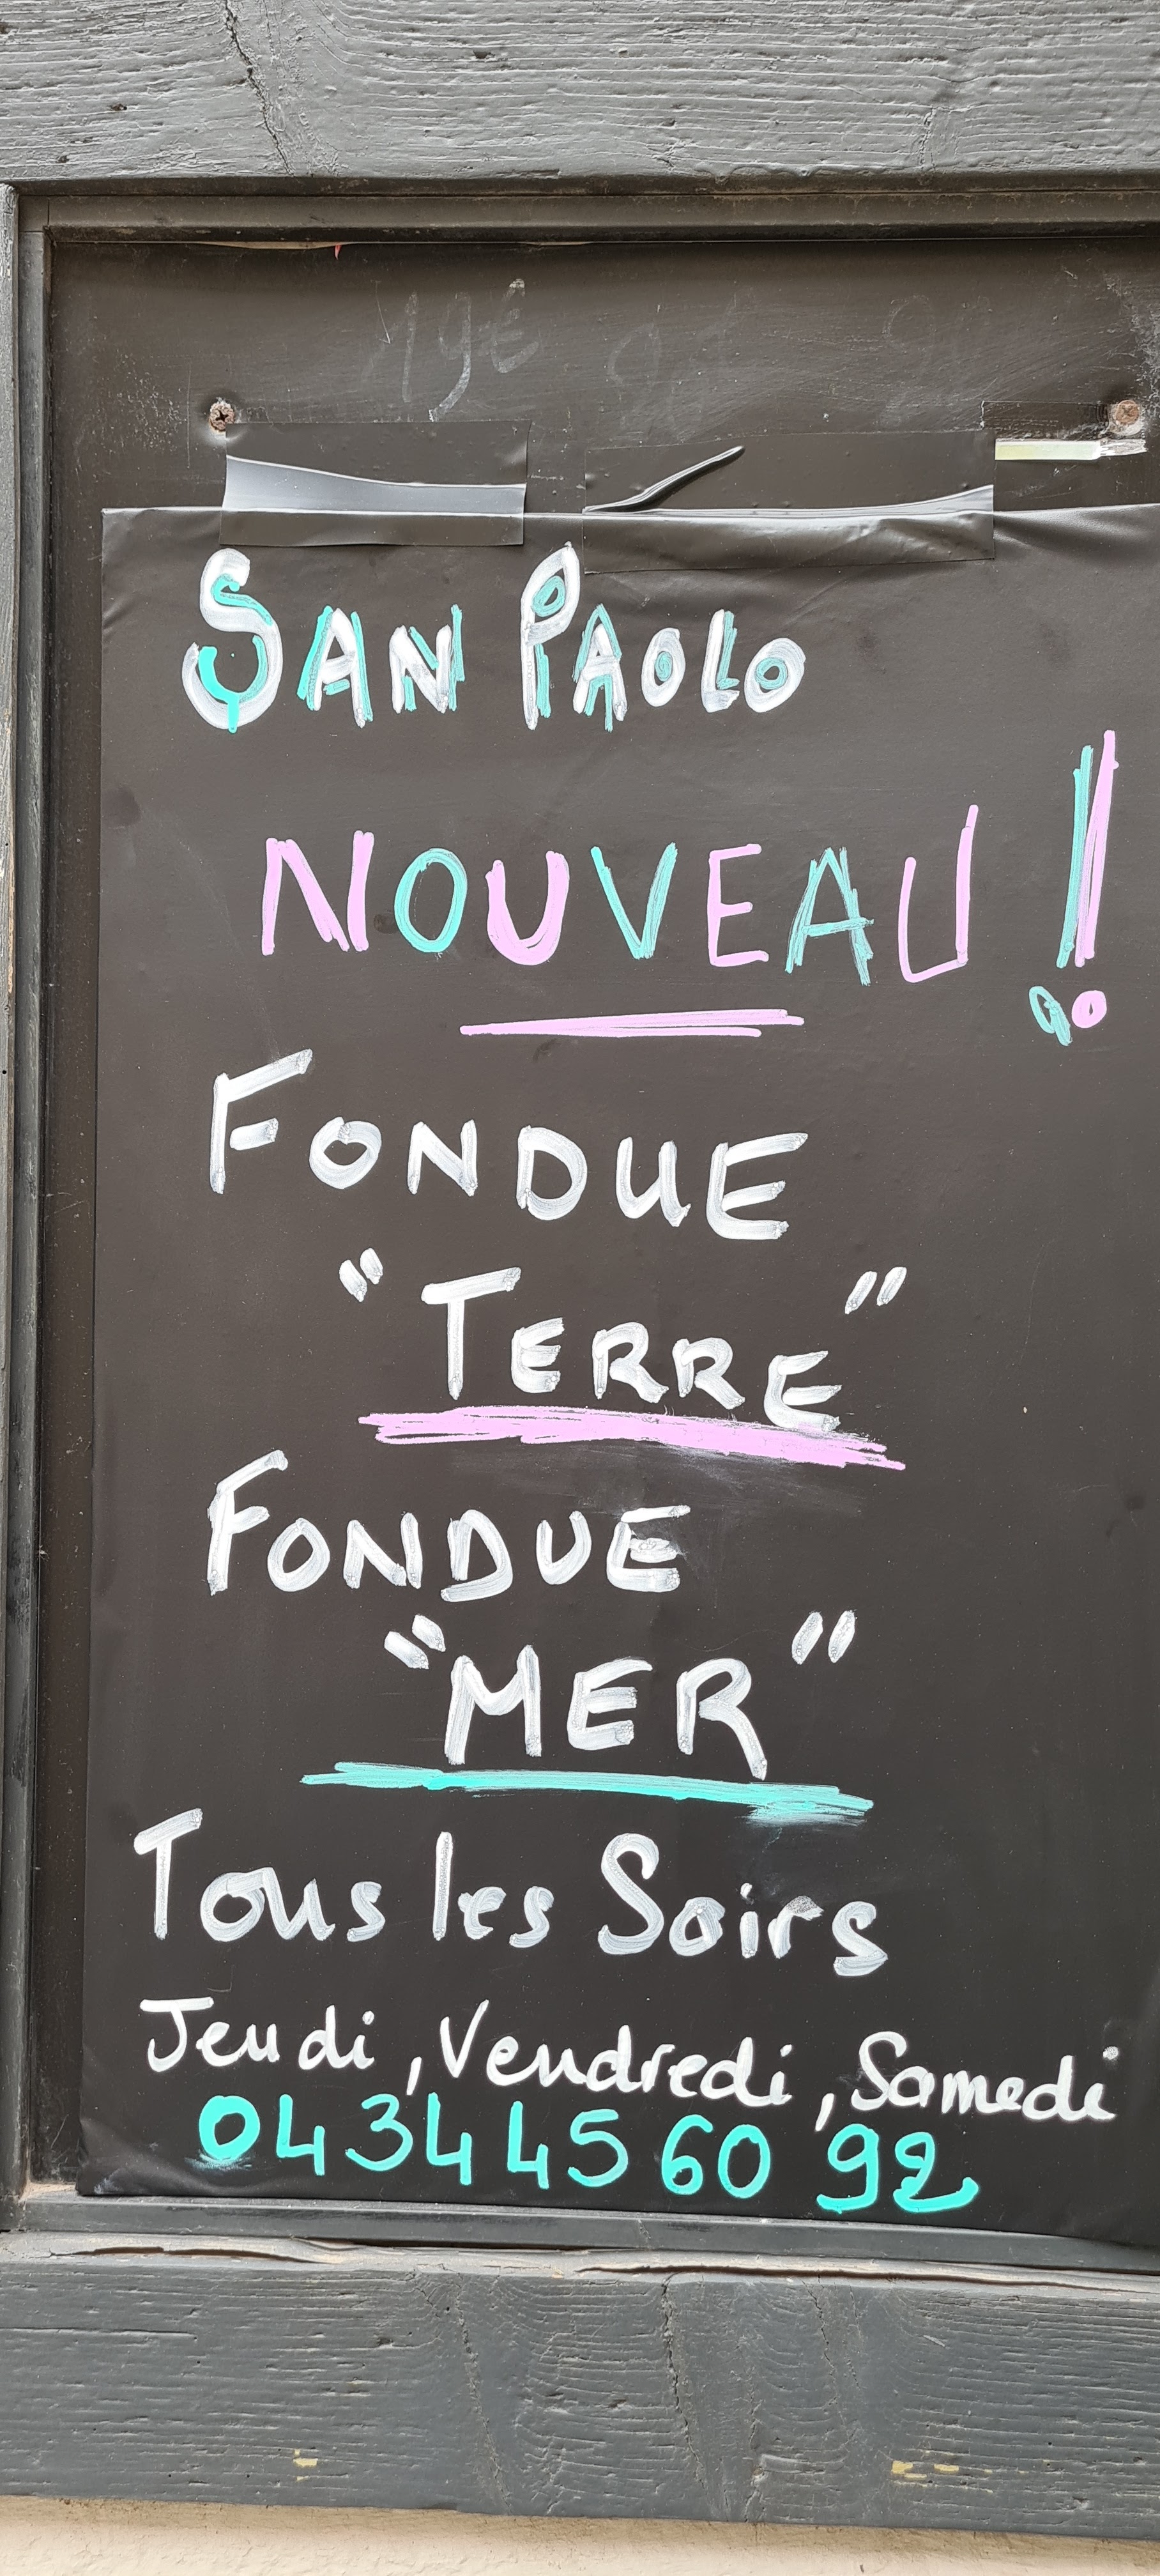 19€
SAN PAOLO
NOUVEAU !!
FONDUE
"TERRE"
FONDUE
"MER"
Tous les Soirs
Jeudi, Vendredi, Samedi
04 34 45 60 92